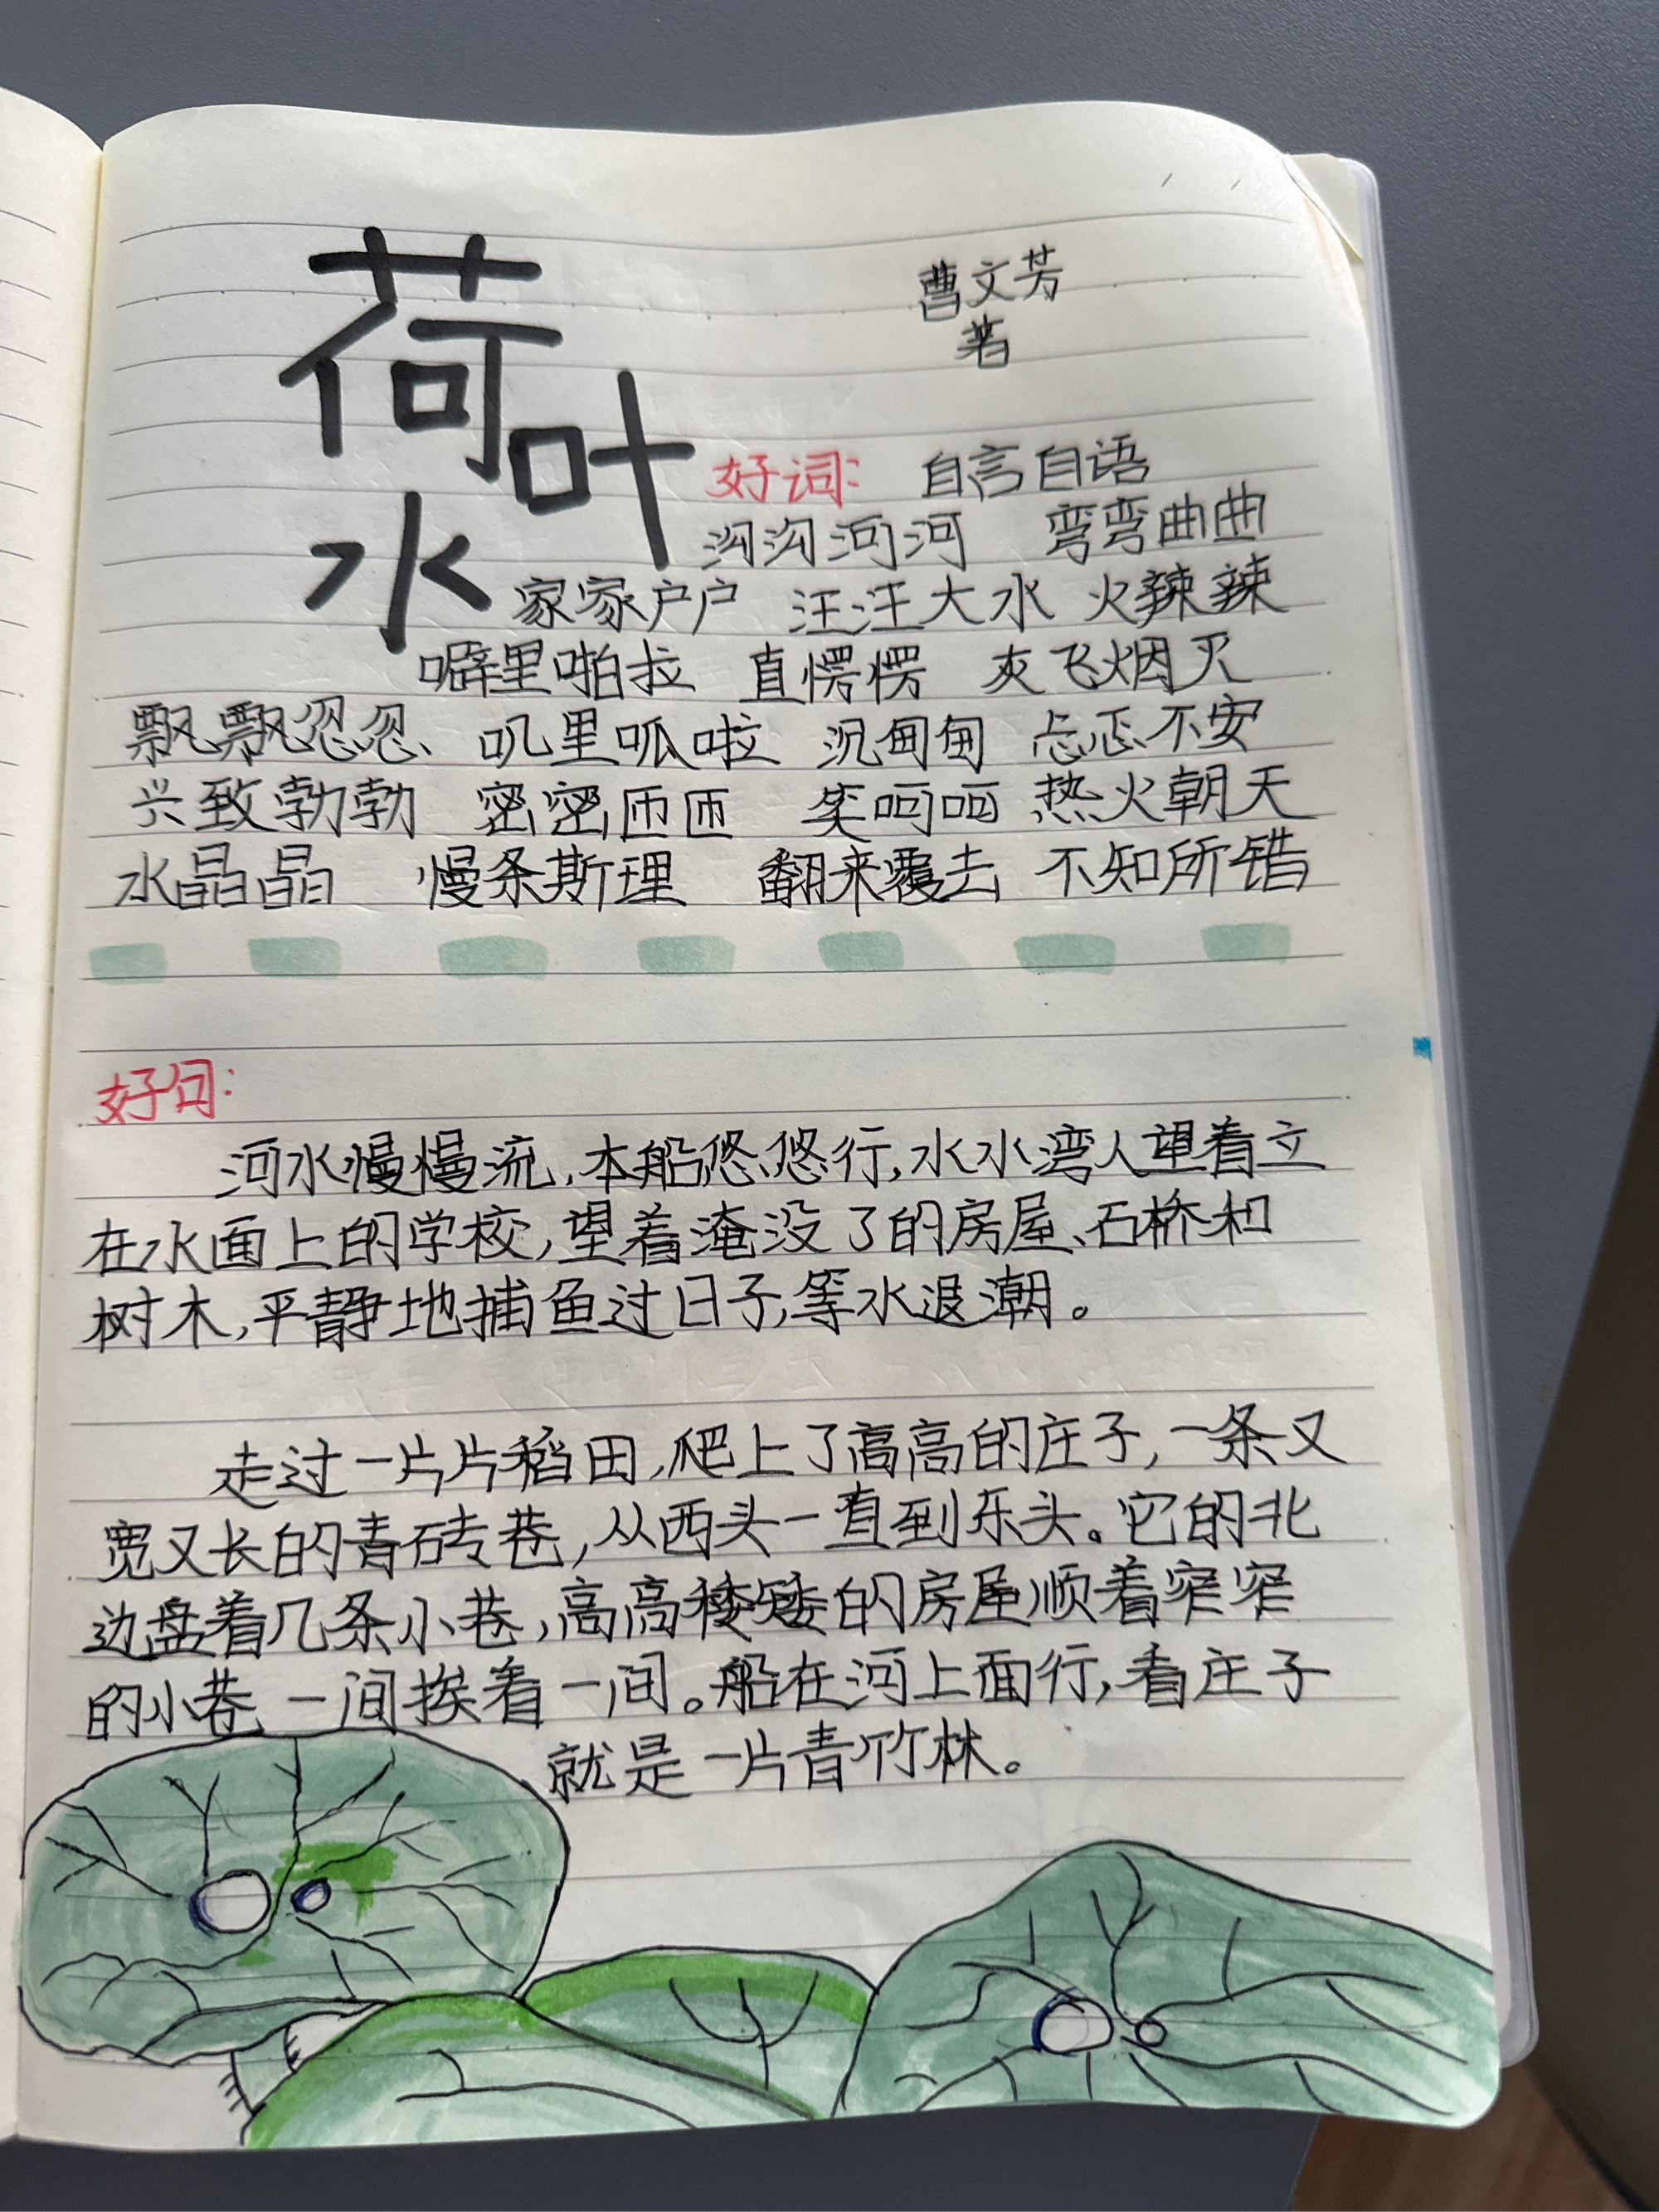 荷叶水
曹文芳
著
好词： 自言自语
沟沟河河 弯弯曲曲
家家户户 汪汪大水 火辣辣
噼里啪拉 直愣愣 灰飞烟灭
飘飘忽忽、 叽里呱啦 沉甸甸 忐忑不安
兴致勃勃 密密匝匝 笑呵呵 热火朝天
水晶晶 慢条斯理 翻来覆去 不知所错
好句：
河水慢慢流，本船悠悠行，水水湾人望着立
在水面上的学校，望着淹没了的房屋、石桥和
树木，平静地捕鱼过日子，等水退潮。
走过一片片稻田，爬上了高高的庄子，一条又
宽又长的青砖巷，从西头一直到东头。它的北
边盘着几条小巷，高高矮矮的房屋顺着窄窄
的小巷一间挨着一间。船在河上面行，看庄子
就是一片青竹林。